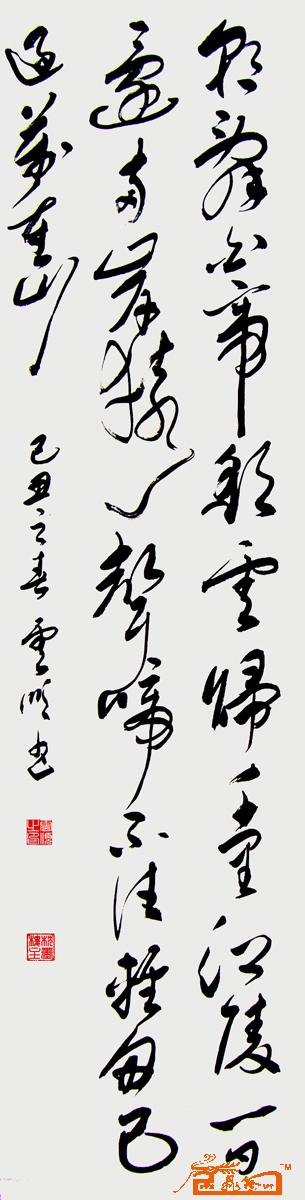 朝辭白帝彩雲歸千里江陵一日
還兩岸猿聲啼不住輕舟已
過萬重山
己丑之春雲書